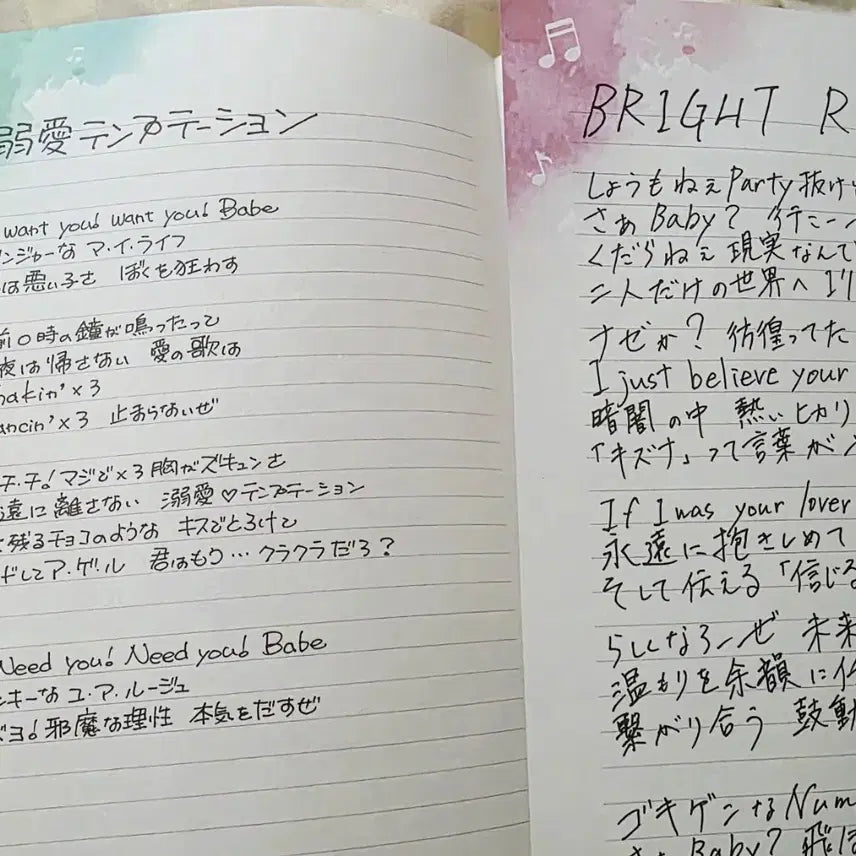 溺愛テンプテーション
want you! want you! Babe
ンジャーな マ・イ・ライフ
は悪い子さ ぼくを狂わす
前0時の鐘が鳴ったって
夜は帰さない 愛の歌は
hakin'×3
ancin'×3 止まらないぜ
チ・チ! マジで×3 胸がズキュンさ
遠に離さない 溺愛♡テンプテーション
残るチョコのような キスでとろけて
ドしてア・ゲ・ル 君はもう… クラクラだろ?
Need you! Need you! Babe
ンキーな ユ・ア・ルージュ
ヨ! 邪魔な理性 本気をだすぜ
BRIGHT R
しょうもねぇParty 抜け
さぁ Baby? 行こー
くだらねぇ 現実なんて
二人だけの世界へ I'l
ナゼか? 彷徨ってた
I just believe your
暗闇の中 熱いヒカリ
「キズナ」って言葉が
If I was your lover
永遠に抱きしめて
そして伝える「信じる
らしくなろーぜ 未来
温もりを余韻に
繋がり合う 鼓動
ゴキゲンなNum
さぁ Baby? 飛